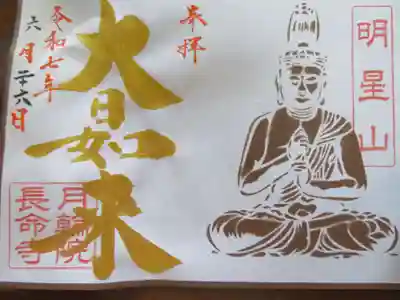 明星山
奉拝
大日如来
令和七年
六月廿六日
月輪院
長命寺